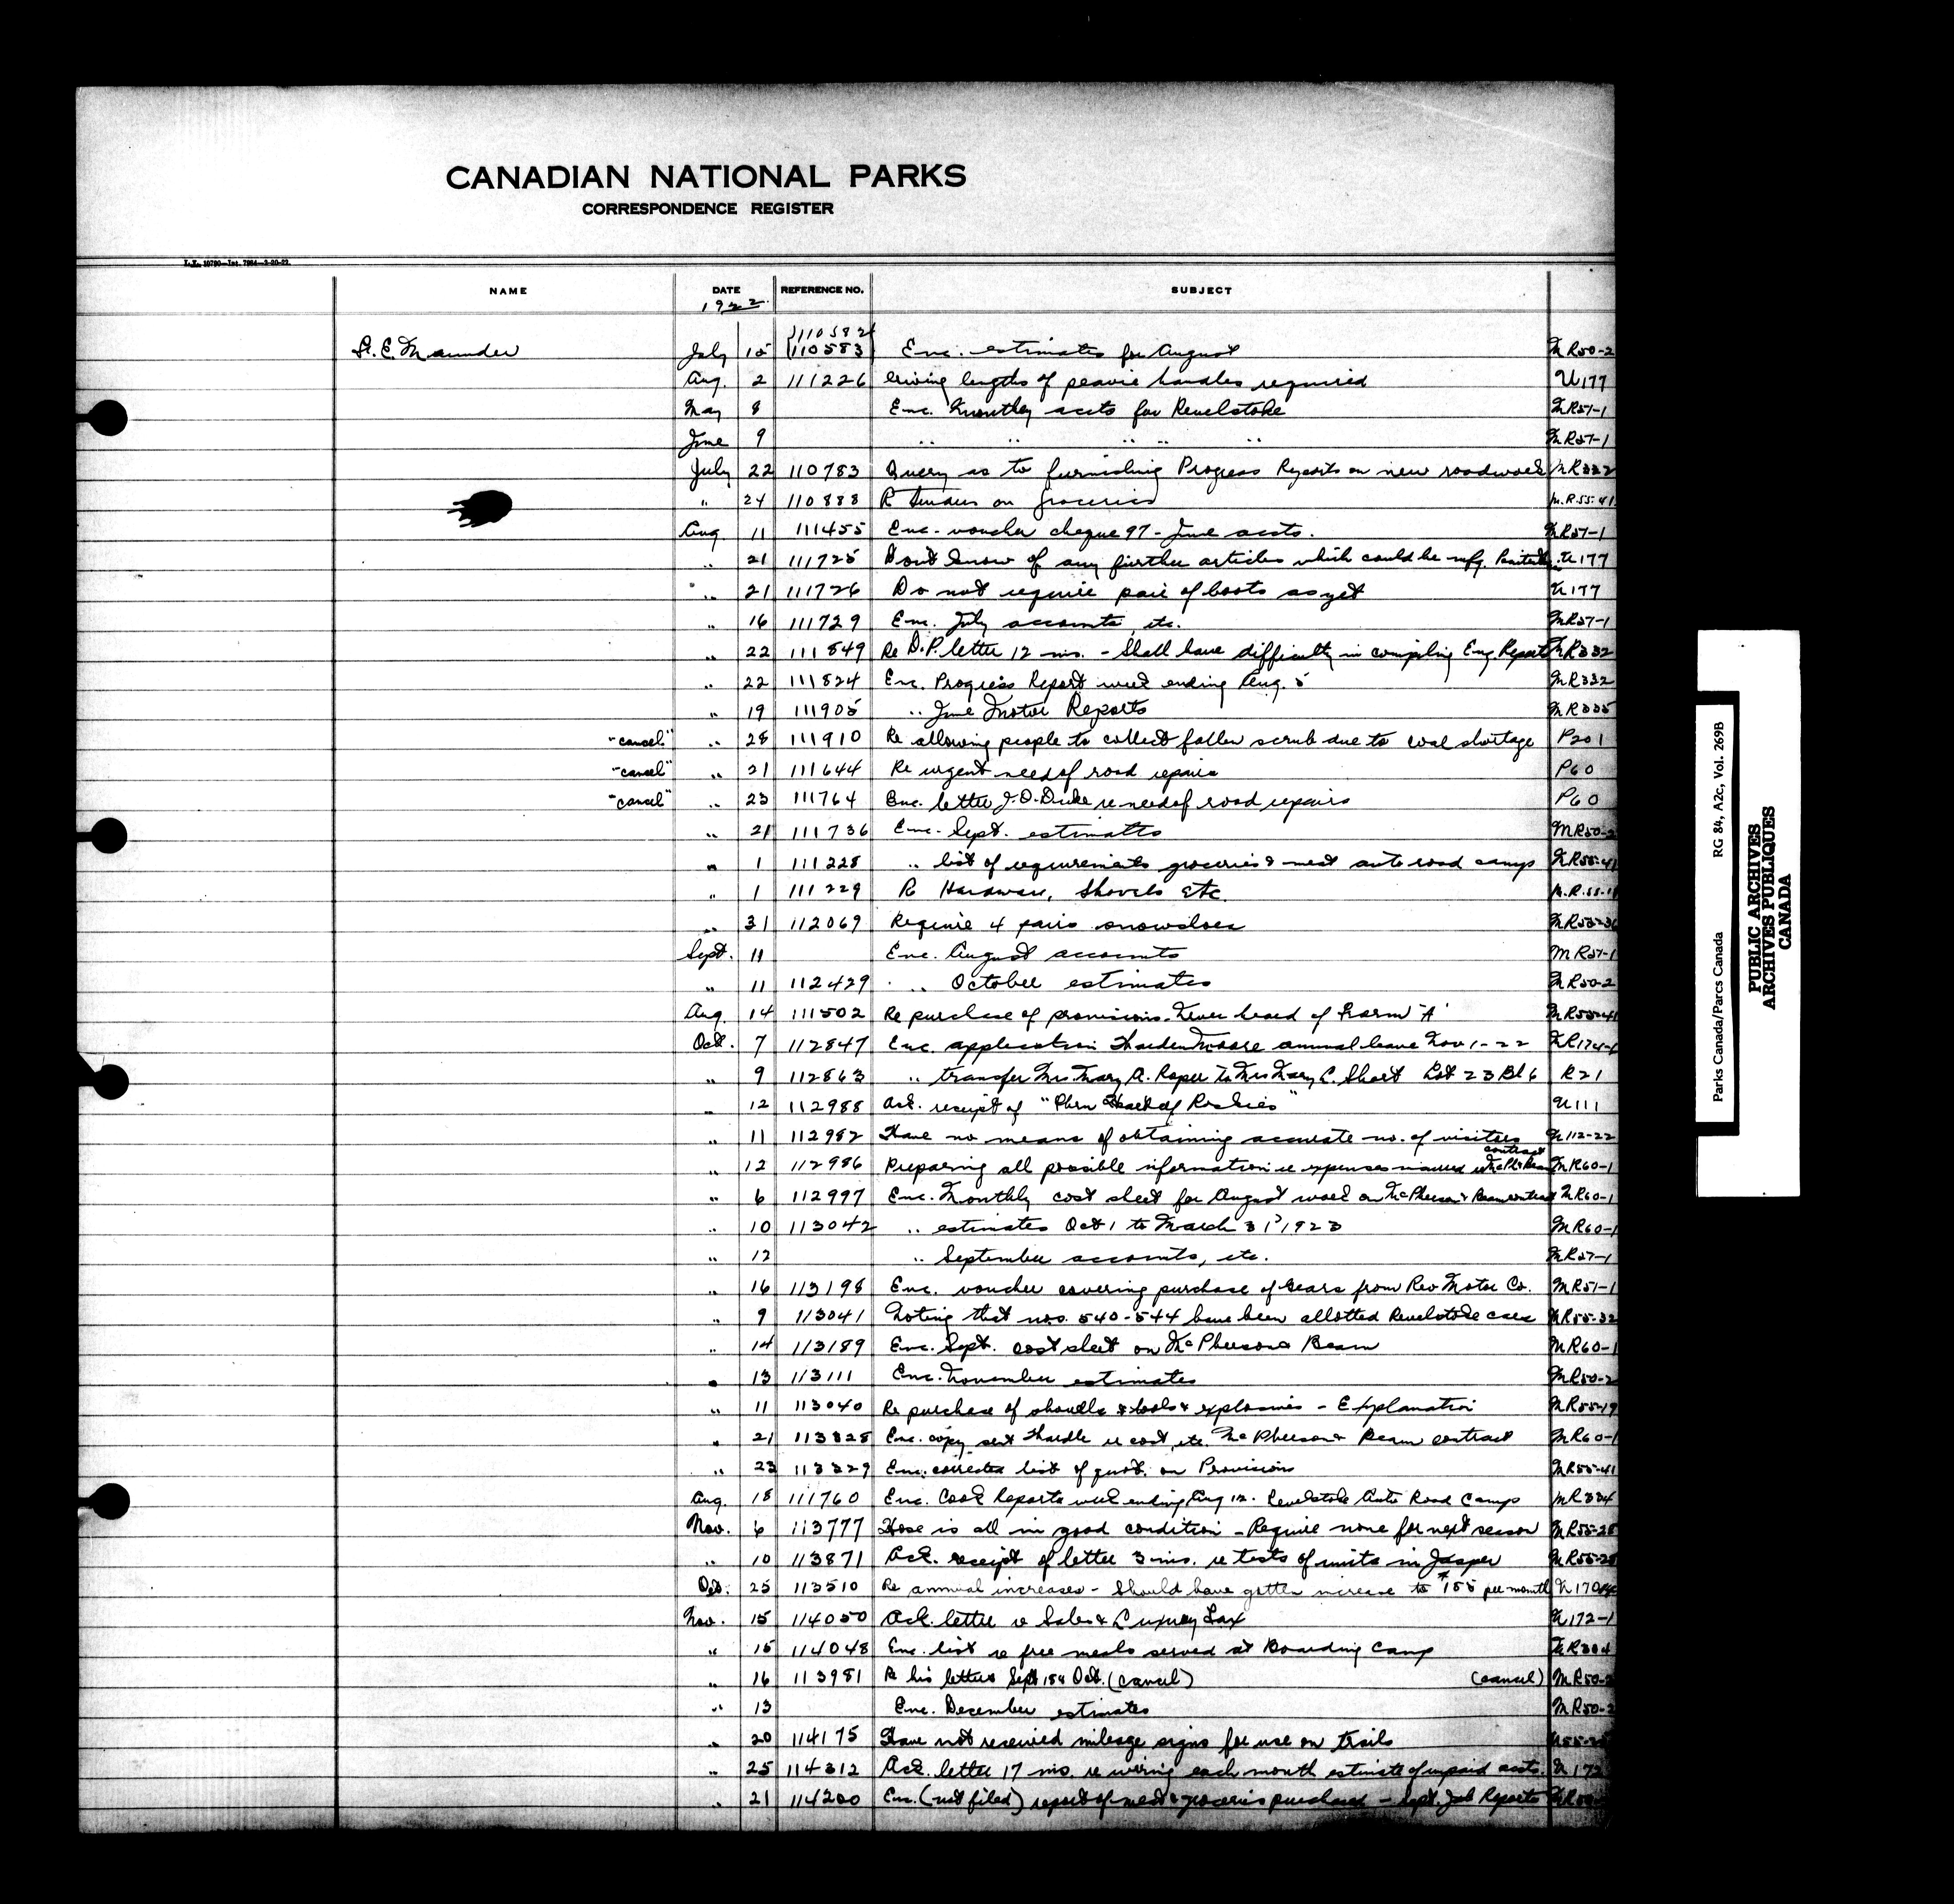 CANADIAN NATIONAL PARKS
CORRESPONDENCE REGISTER
NAME DATE REFERENCE NO. SUBJECT
1922
110582
E. Maunder July 15 110583 Enc. estimates for August MR50-2
Aug. 2 111226 Giving lengths of peavie handles required U177
May 8 Enc. Monthly accts for Revelstoke MR57-1
June 9 " " " " " MR57-1
July 22 110783 Query as to furnishing Progress Reports on new roadwork MR332
" 24 110888 R Tenders on Groceries M.R.55-41
Aug 11 111455 Enc. voucher cheque 97 - June accts. MR57-1
" 21 111725 Dont know of any further articles which could be mfg. U177
" 21 111726 Do not require pair of boots as yet U177
" 16 111729 Enc. July accounts, etc. MR57-1
" 22 111849 Re D.P. letter 12 ins. - Shall have difficulty in compiling Eng. Reports MR332
" 22 111824 Enc. Progress Report week ending Aug. 5 MR332
" 19 111905 " June Motor Reports MR335
"cancel" " 28 111910 Re allowing people to collect fallen scrub due to coal shortage P201
"cancel" " 21 111644 Re urgent need of road repairs P60
"cancel" " 23 111764 Enc. letter J.O. Duke re need of road repairs P60
" 21 111736 Enc. Sept. estimates MR50-2
" 1 111228 " list of requirements groceries & meat auto road camps MR55-41
" 1 111229 Re Hardware, Shovels etc. M.R.55-
" 31 112069 Require 4 pairs snowshoes MR55-36
Sept. 11 Enc. August accounts MR57-1
" 11 112429 " October estimates MR50-2
Aug. 14 111502 Re purchase of provisions. Never heard of Form "A" MR55-41
Oct. 7 112847 Enc. application Warden Moore annual leave Nov 1-22
" 9 112863 " transfer Mrs Mary A. Roper to Mrs Mary C. Short Lot 23 Bl 6 R21
" 12 112988 Ack. receipt of "Thru Heart of Rockies" U111
" 11 112982 Have no means of obtaining accurate no. of visitors U112-22
" 12 112986 Preparing all possible information re expenses incurred re McPh & Beam contract MR60-1
" 6 112997 Enc. Monthly cost sheet for August work on McPherson & Beam contract MR60-1
" 10 113042 " estimates Oct 1 to March 31, 1923 MR60-1
" 12 " September accounts, etc. MR57-1
" 16 113198 Enc. voucher covering purchase of Gears from Rev Motor Co. MR51-1
" 9 113041 Noting that nos. 540-544 have been allotted Revelstoke cars MR55-32
" 14 113189 Enc. Sept. cost sheet on McPherson & Beam MR60-1
" 13 113111 Enc. November estimates MR50-2
" 11 113040 Re purchase of shovels & tools & explosives - Explanation MR55-19
" 21 113328 Enc. copy sent Wardle re cost, etc. McPherson & Beam contract MR60-1
" 23 113329 Enc. corrected list of quot. on Provisions MR55-41
Aug. 18 111760 Enc. Cook Reports week ending Aug 12. Revelstoke Auto Road Camps MR334
Nov. 6 113777 Hose is all in good condition - Require none for next season MR55-28
" 10 113871 Ack. receipt of letter 3 ins. re tests of units in Jasper MR55-28
Oct. 25 113510 Re annual increases - Should have gotten increase to $155 per month
Nov. 15 114050 Ack. letter re Sales & Luxury Tax U172-1
" 15 114048 Enc. list re free meals served at Boarding Camp MR304
" 16 113981 Re his letters Sept 18 & Oct. (cancel) (cancel) MR50-2
" 13 Enc. December estimates MR50-2
" 20 114175 Have not received mileage signs for use on trails
" 25 114312 Ack. letter 17 ins. re wiring each month estimate of unpaid accts. U172
" 21 114200 Enc. (not filed) report of meat & groceries purchased - Sept. Job Reports
Parks Canada/Parcs Canada RG 84, A2c, Vol. 269B
PUBLIC ARCHIVES
ARCHIVES PUBLIQUES
CANADA